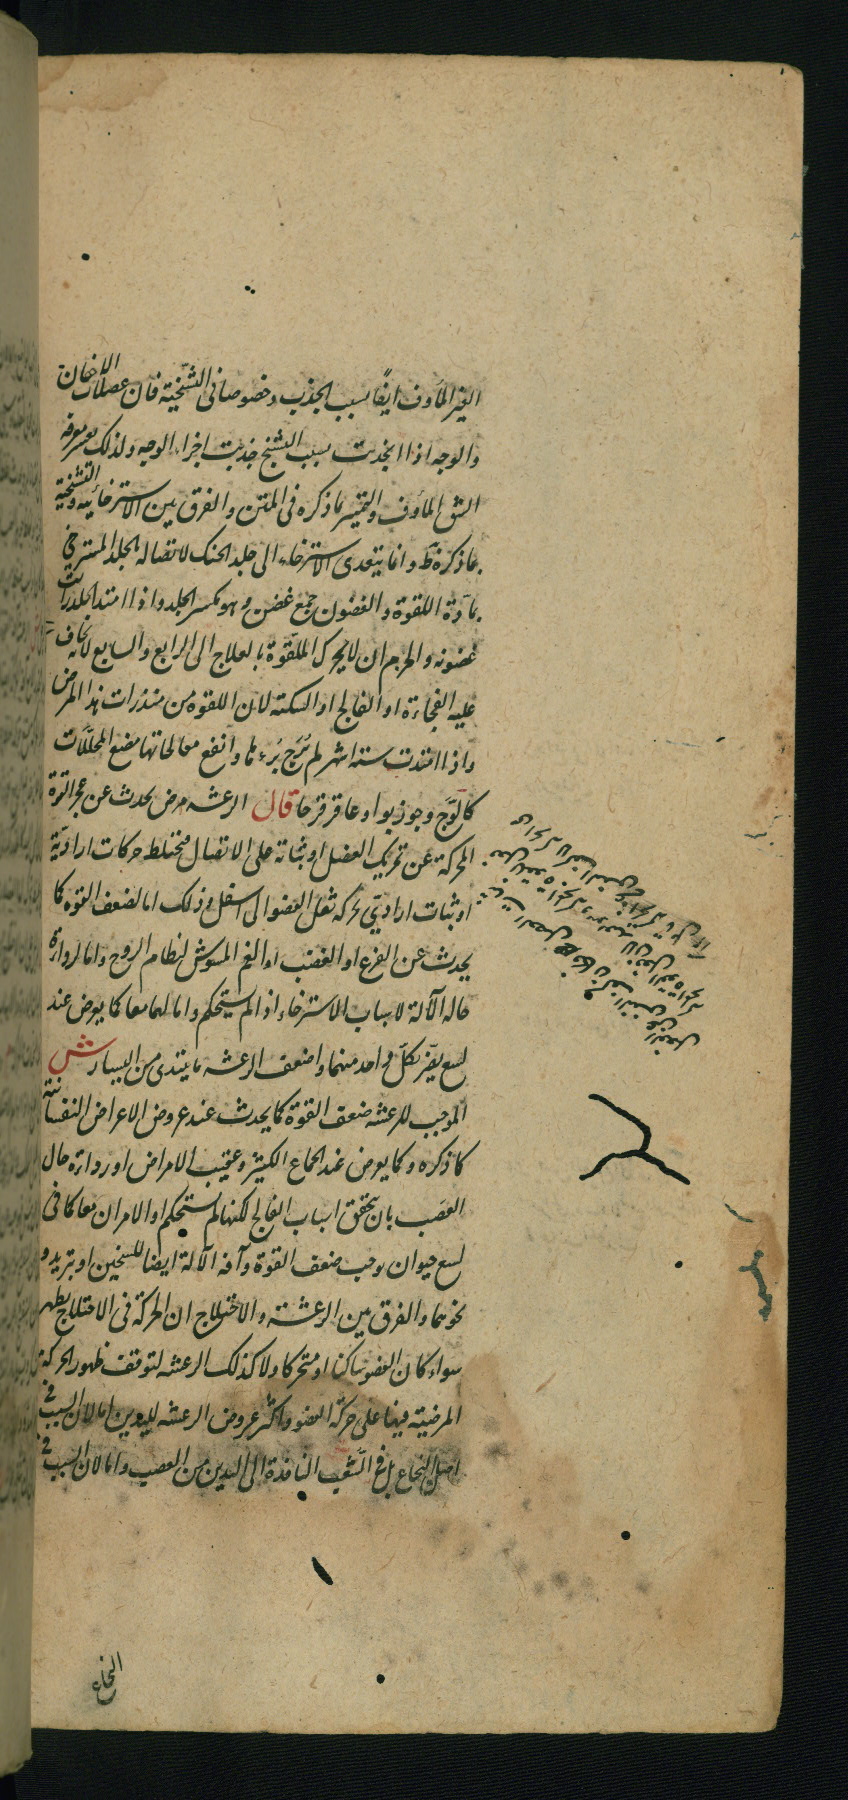 الغير المأوف ايضًا بسبب الجذب وخصوصا فى التشنجية فان عضلات الاجفان
والوجه اذا انجذبت بسبب التشنج جذبت اجزاء الوجه ولذلك يعسر معرفة
الشق المأوف والتمييز بما ذكره فى المتن والفرق بين الاسترخائية والتشنجية
بما ذكره ظ وانما يتعدى الاسترخاء الى جلد الحنك لاتصاله بالجلد المسترخى
بمادة اللقوة والغضون جمع غضن وهو مكسر الجلد واذا امتد الجلد زالت
غضونه والحزم ان لا يحرك الملقوة بالعلاج الى الرابع والسابع لانه يخاف
عليه الفجاءة او الفالج او السكتة لان اللقوة من منذرات هذا المرض
واذا امتدت ستة اشهر لم يرج برءها وانفع معالجاتها مضغ المحللات
كالوج وجوزبوا وعاقرقرحا قال الرعشه مرض يحدث عن عجز القوة
المحركة عن تحريك العضل او ثباته على الاتصال فيختلط حركات ارادية
او ثبات ارادى بحركة ثقل العضو الى اسفل وذلك اما لضعف القوة كما
يحدث عن الفزع او الغضب او الغم المشوش لنظام الروح واما لرداءة
حاله الآلة لاسباب الاسترخاء اذا لم يستحكم واما لهما معا كما يعرض عند
لسع يضر بكل واحد منهما واضعف الرعشه ما يبتدى من اليسار ش
الموجب للرعشه ضعف القوة كما يحدث عند عروض الاعراض النفسانية
كما ذكره وكما يعرض عند الجماع الكثير وعقيب الامراض او رداءة حال
العصب بان يتحقق اسباب الفالج لكنها لم يستحكم او الامران معا كما فى
لسع حيوان يوجب ضعف القوة وآفه الآلة ايضا للتسخين او تبريد و
نحوهما والفرق بين الرعشة والاختلاج ان الحركة فى الاختلاج يظهر
سواء كان العضو ساكنا او متحركا ولا كذلك الرعشه لتوقف ظهور الحركة
المرضية فيها على حركة العضو واكثر عروض الرعشه لليدين اما لان السبب فى
اصل النخاع بل فى الشعب النافذة الى اليدين من العصب واما لان السبب فى
النخاع